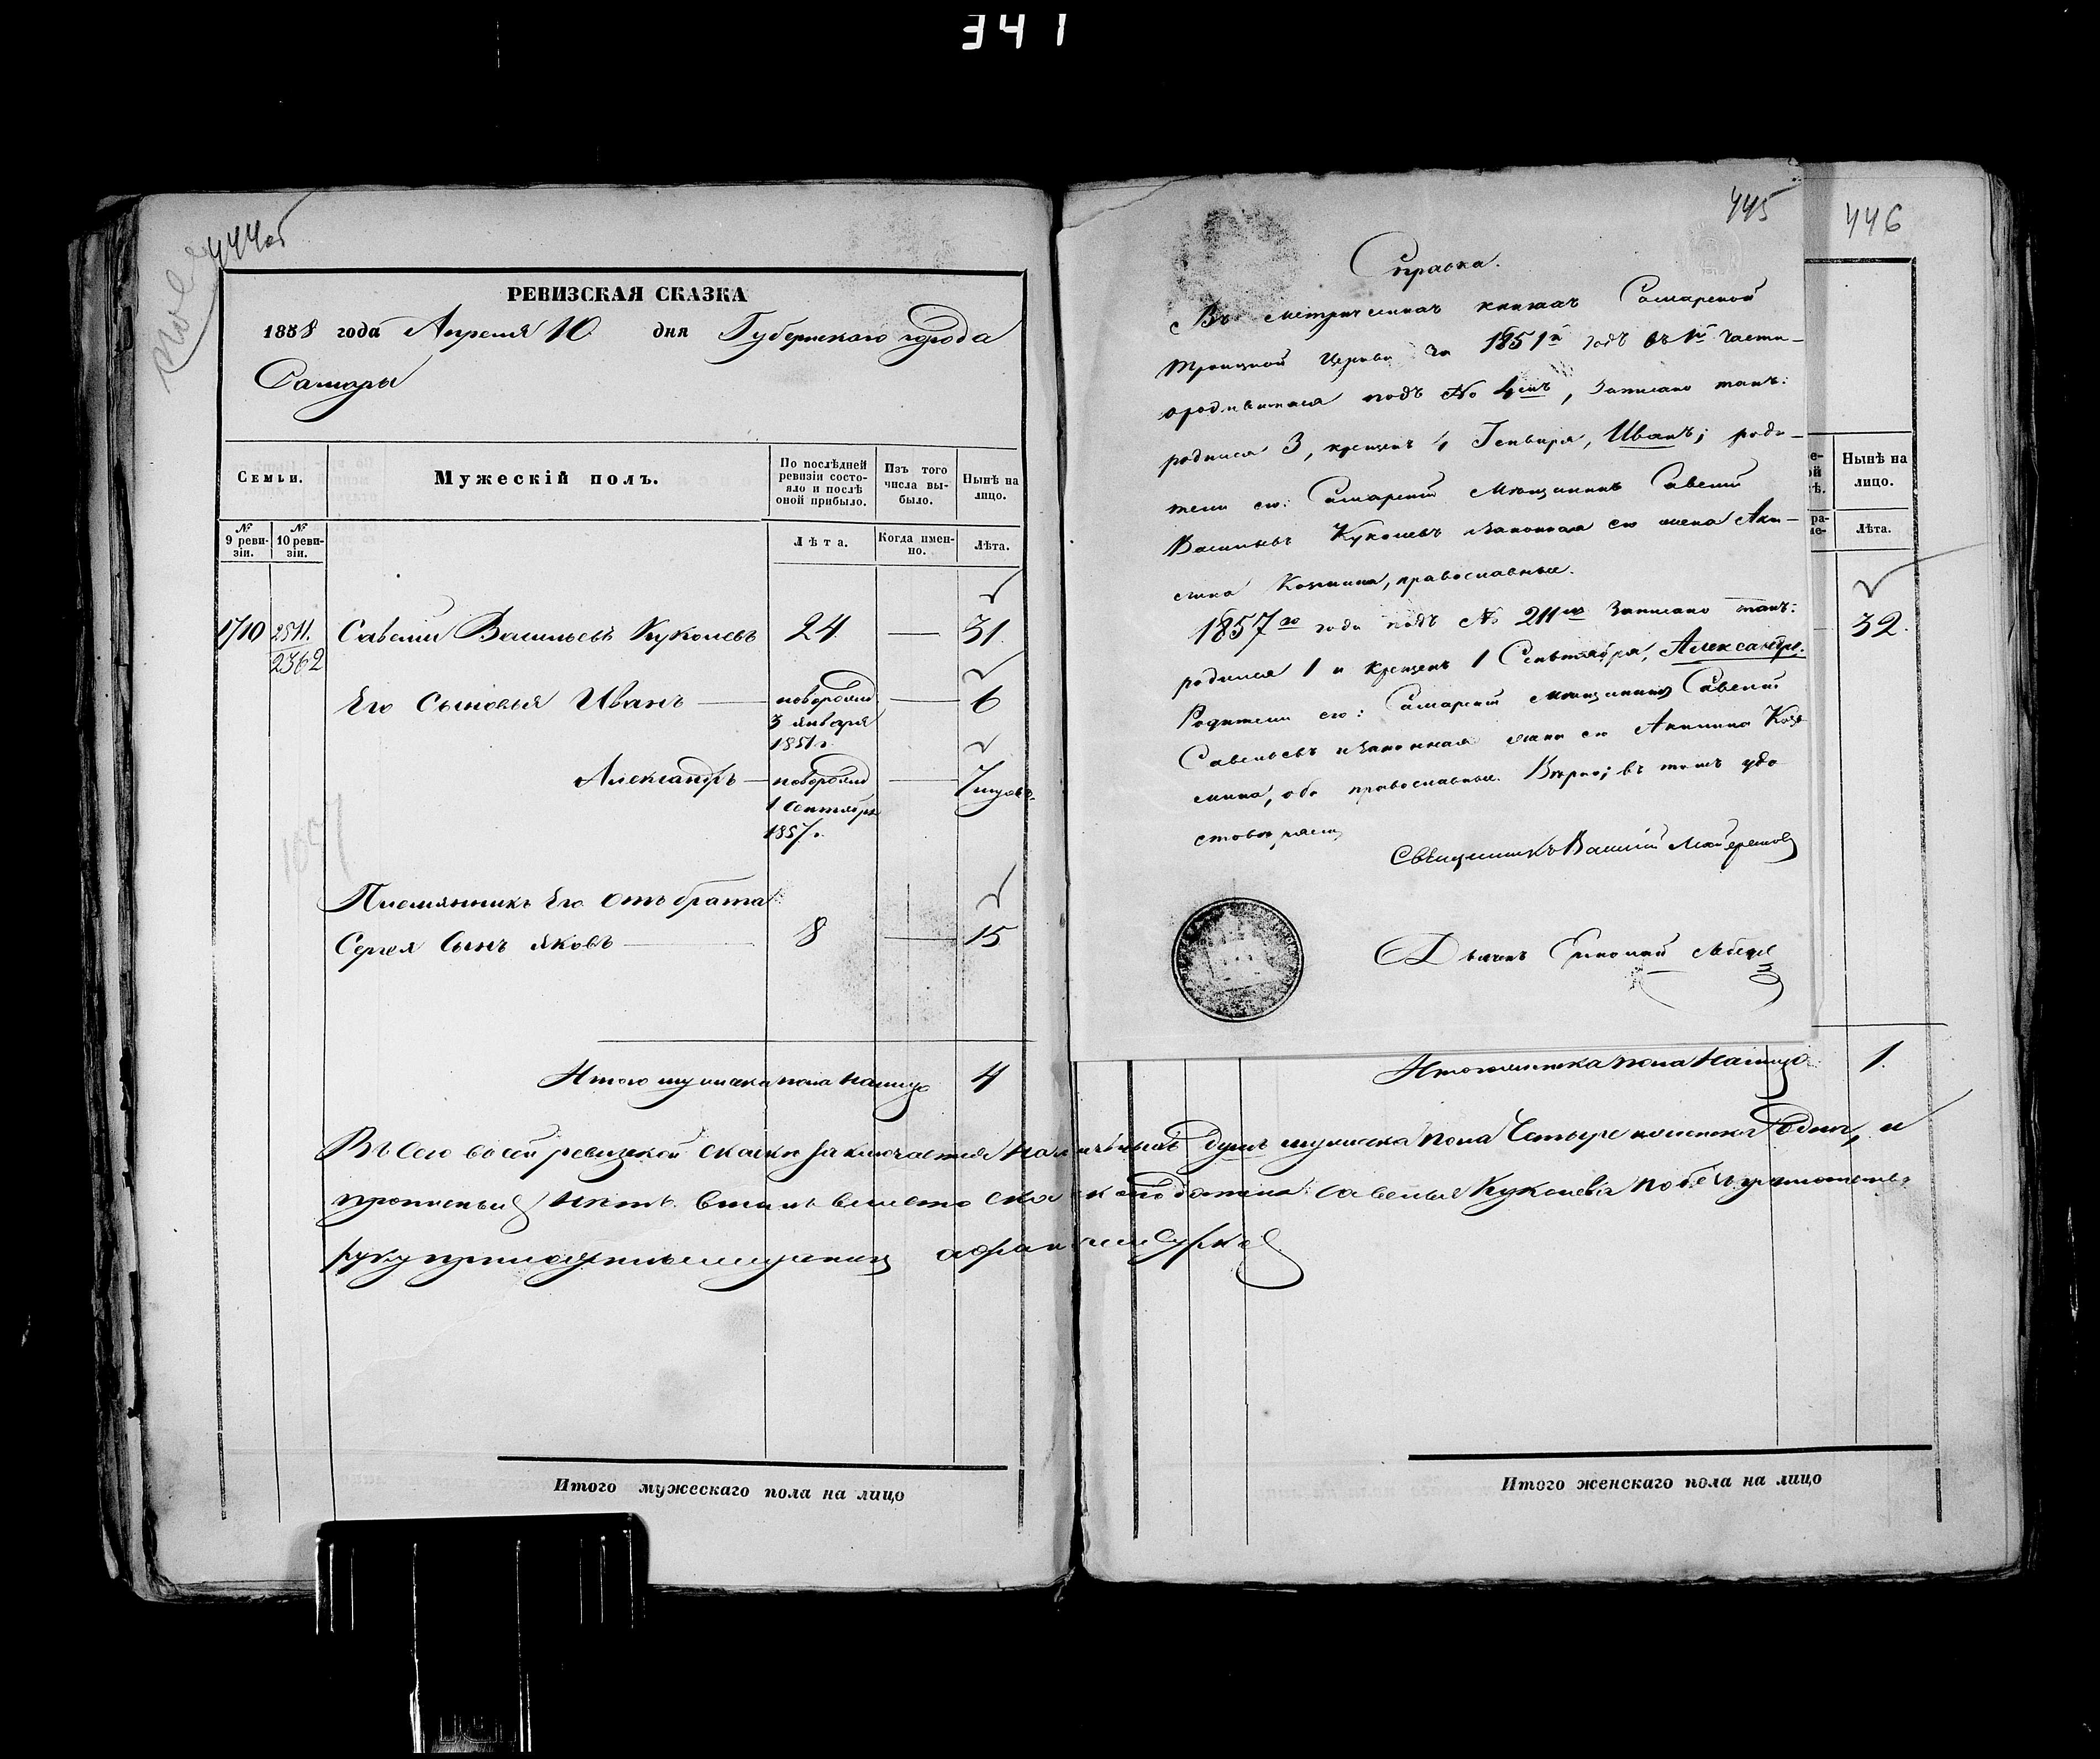 341
444об
РЕВИЗСКАЯ СКАЗКА
1858 года Апреля 10 дня Губернскаго города
Самары
Семьи.
Мужескій полъ.
По послѣдней ревизіи состояло и послѣ оной прибыло.
Изъ того числа выбыло.
Нынѣ на лицо.
№ 9 ревизіи.
№ 10 ревизіи.
Лѣта.
Когда именно.
Лѣта.
1710 2511. Савелий Васильевъ Куколевъ 24 — 31.
2362
Его Сыновья Иванъ — новорожд — 6
3 января
1851 г.
Александръ — новорожд — 7 мѣсяц.
1 Сентября
1857 г.
Племянникъ Его Отъ брата
Сергея Сынъ Яковъ — 8 — 15
Итого мужеска пола налицо 4
445
Справка.
Въ метрическихъ книгахъ Самарской
Троицкой Церкви за 1851й годъ въ 1й части
о родившихся подъ № 4мъ, записано такъ:
родился 3, крещенъ 4 Генваря, Иванъ; роди-
тели его: Самарский Мѣщанинъ Савелий
Васильевъ Куколевъ и законная его жена Аки-
лина Козмина, православные.
1857го года подъ № 211мъ записано такъ:
родился 1 и крещенъ 1 Сентября, Александръ.
Родители его: Самарский мѣщанинъ Савелий
Савельевъ и законная жена его Акилина Козь-
мина, оба православные. Вѣрно; въ томъ удо-
стовѣряемъ
Священникъ Василий
Дьячекъ
446
Нынѣ на лицо.
Лѣта.
32.
Итого женска пола налицо 1.
Въ Сего во сей ревизской сказки заключается наличныхъ душъ мужеска пола Четыре женска одна, и
прописныхъ нѣтъ. Въ томъ вместо сказкоподателя Савелья Куколева по безграмотству
руку приложилъ мещанинъ
Итого мужескаго пола на лицо
Итого женскаго пола на лицо